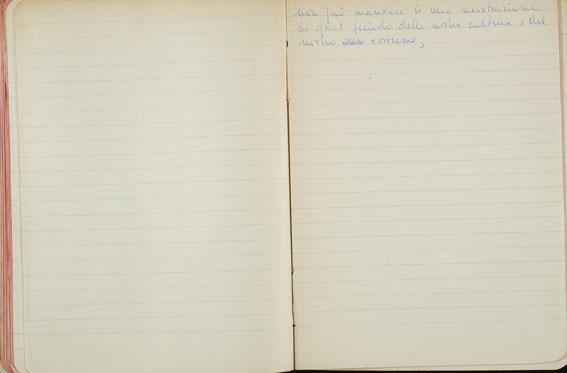 non può mancare in una ricostruzione
di quel periodo della nostra cultura e del
nostro costume,